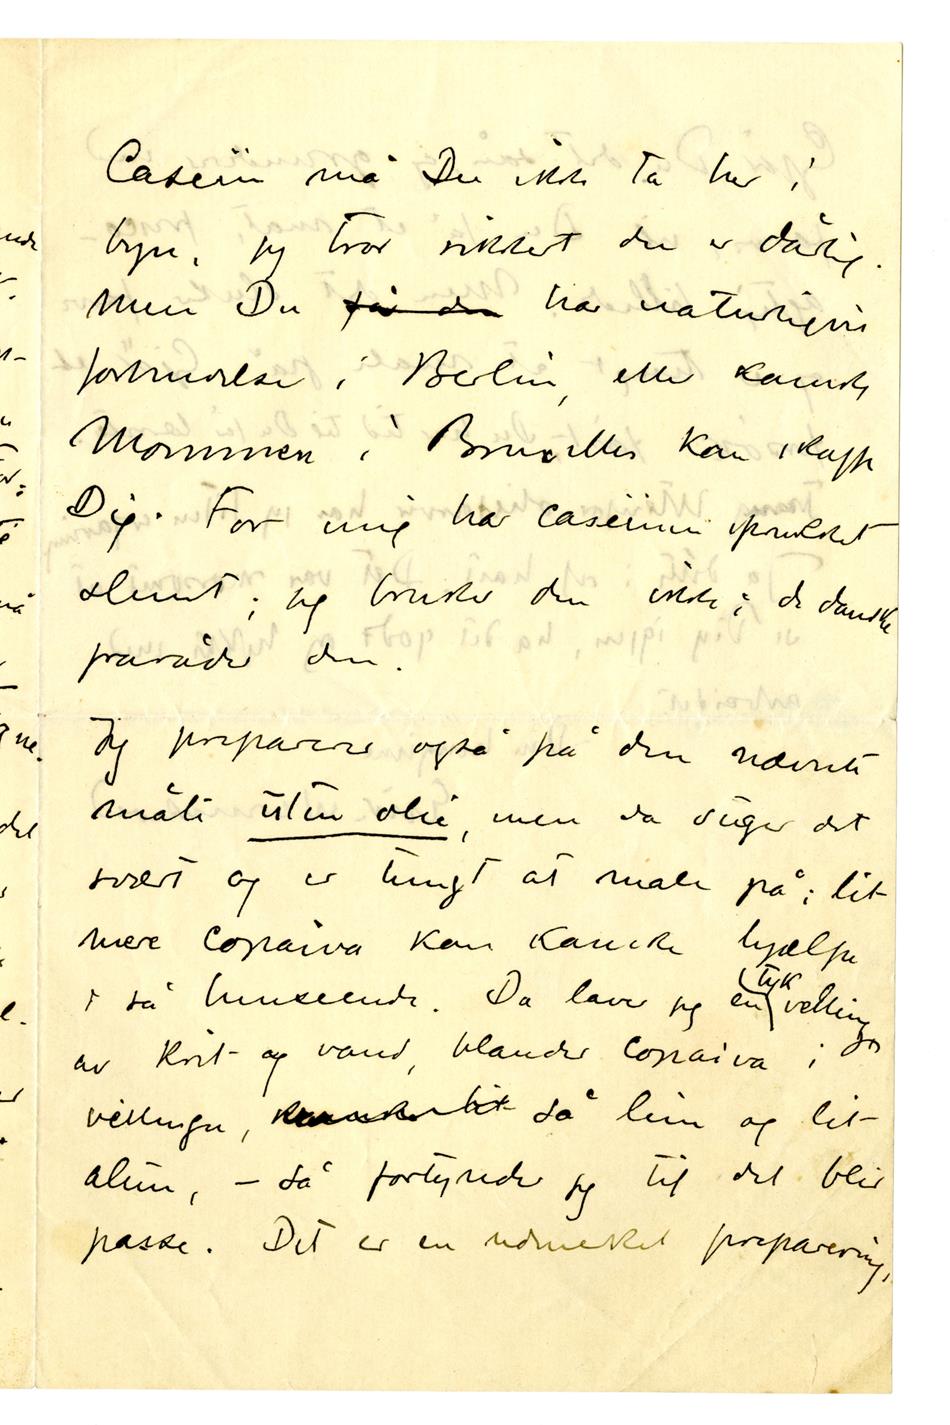 Caseiin må Du ikke ta her i
byen, jeg tror sikkert den er dårlig.
Men Du få den har naturligvis
forbindelse i Berlin, eller kanske
Mommen i Bruxelles kan skaffe
Dig. For mig har caseinen sprukket
slemt; jeg bruker den ikke; de danske
fraråder den.
Jeg preparerer også på den nævnte
måte uten olie, men da suger det
svært og er tungt at male på; lit
mere copaiva kan kanske hjælpe
i så henseende. Da laver jeg en tyk velling
av krit og vand, blander copaiva i
vellingen, kanske lit så lim og lit
alun, – så fortynder jeg til det blir
passe. Det er en udmerket preparering,